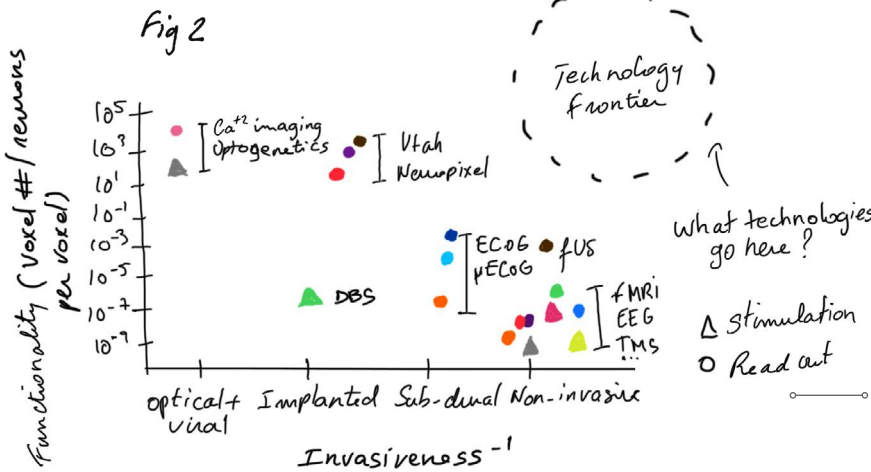 Fig 2
Technology
Frontier
What technologies
go here?
△ Stimulation
○ Read out
Functionality (Voxel #/neurons
per voxel)
10⁵
10³
10¹
10⁻¹
10⁻³
10⁻⁵
10⁻⁷
10⁻⁹
Ca⁺² imaging
Optogenetics
Utah
Neuropixel
DBS
ECoG
μECoG
fUS
fMRi
EEG
TMS
...
optical+
viral
Implanted
Sub-dural
Non-invasive
Invasiveness⁻¹